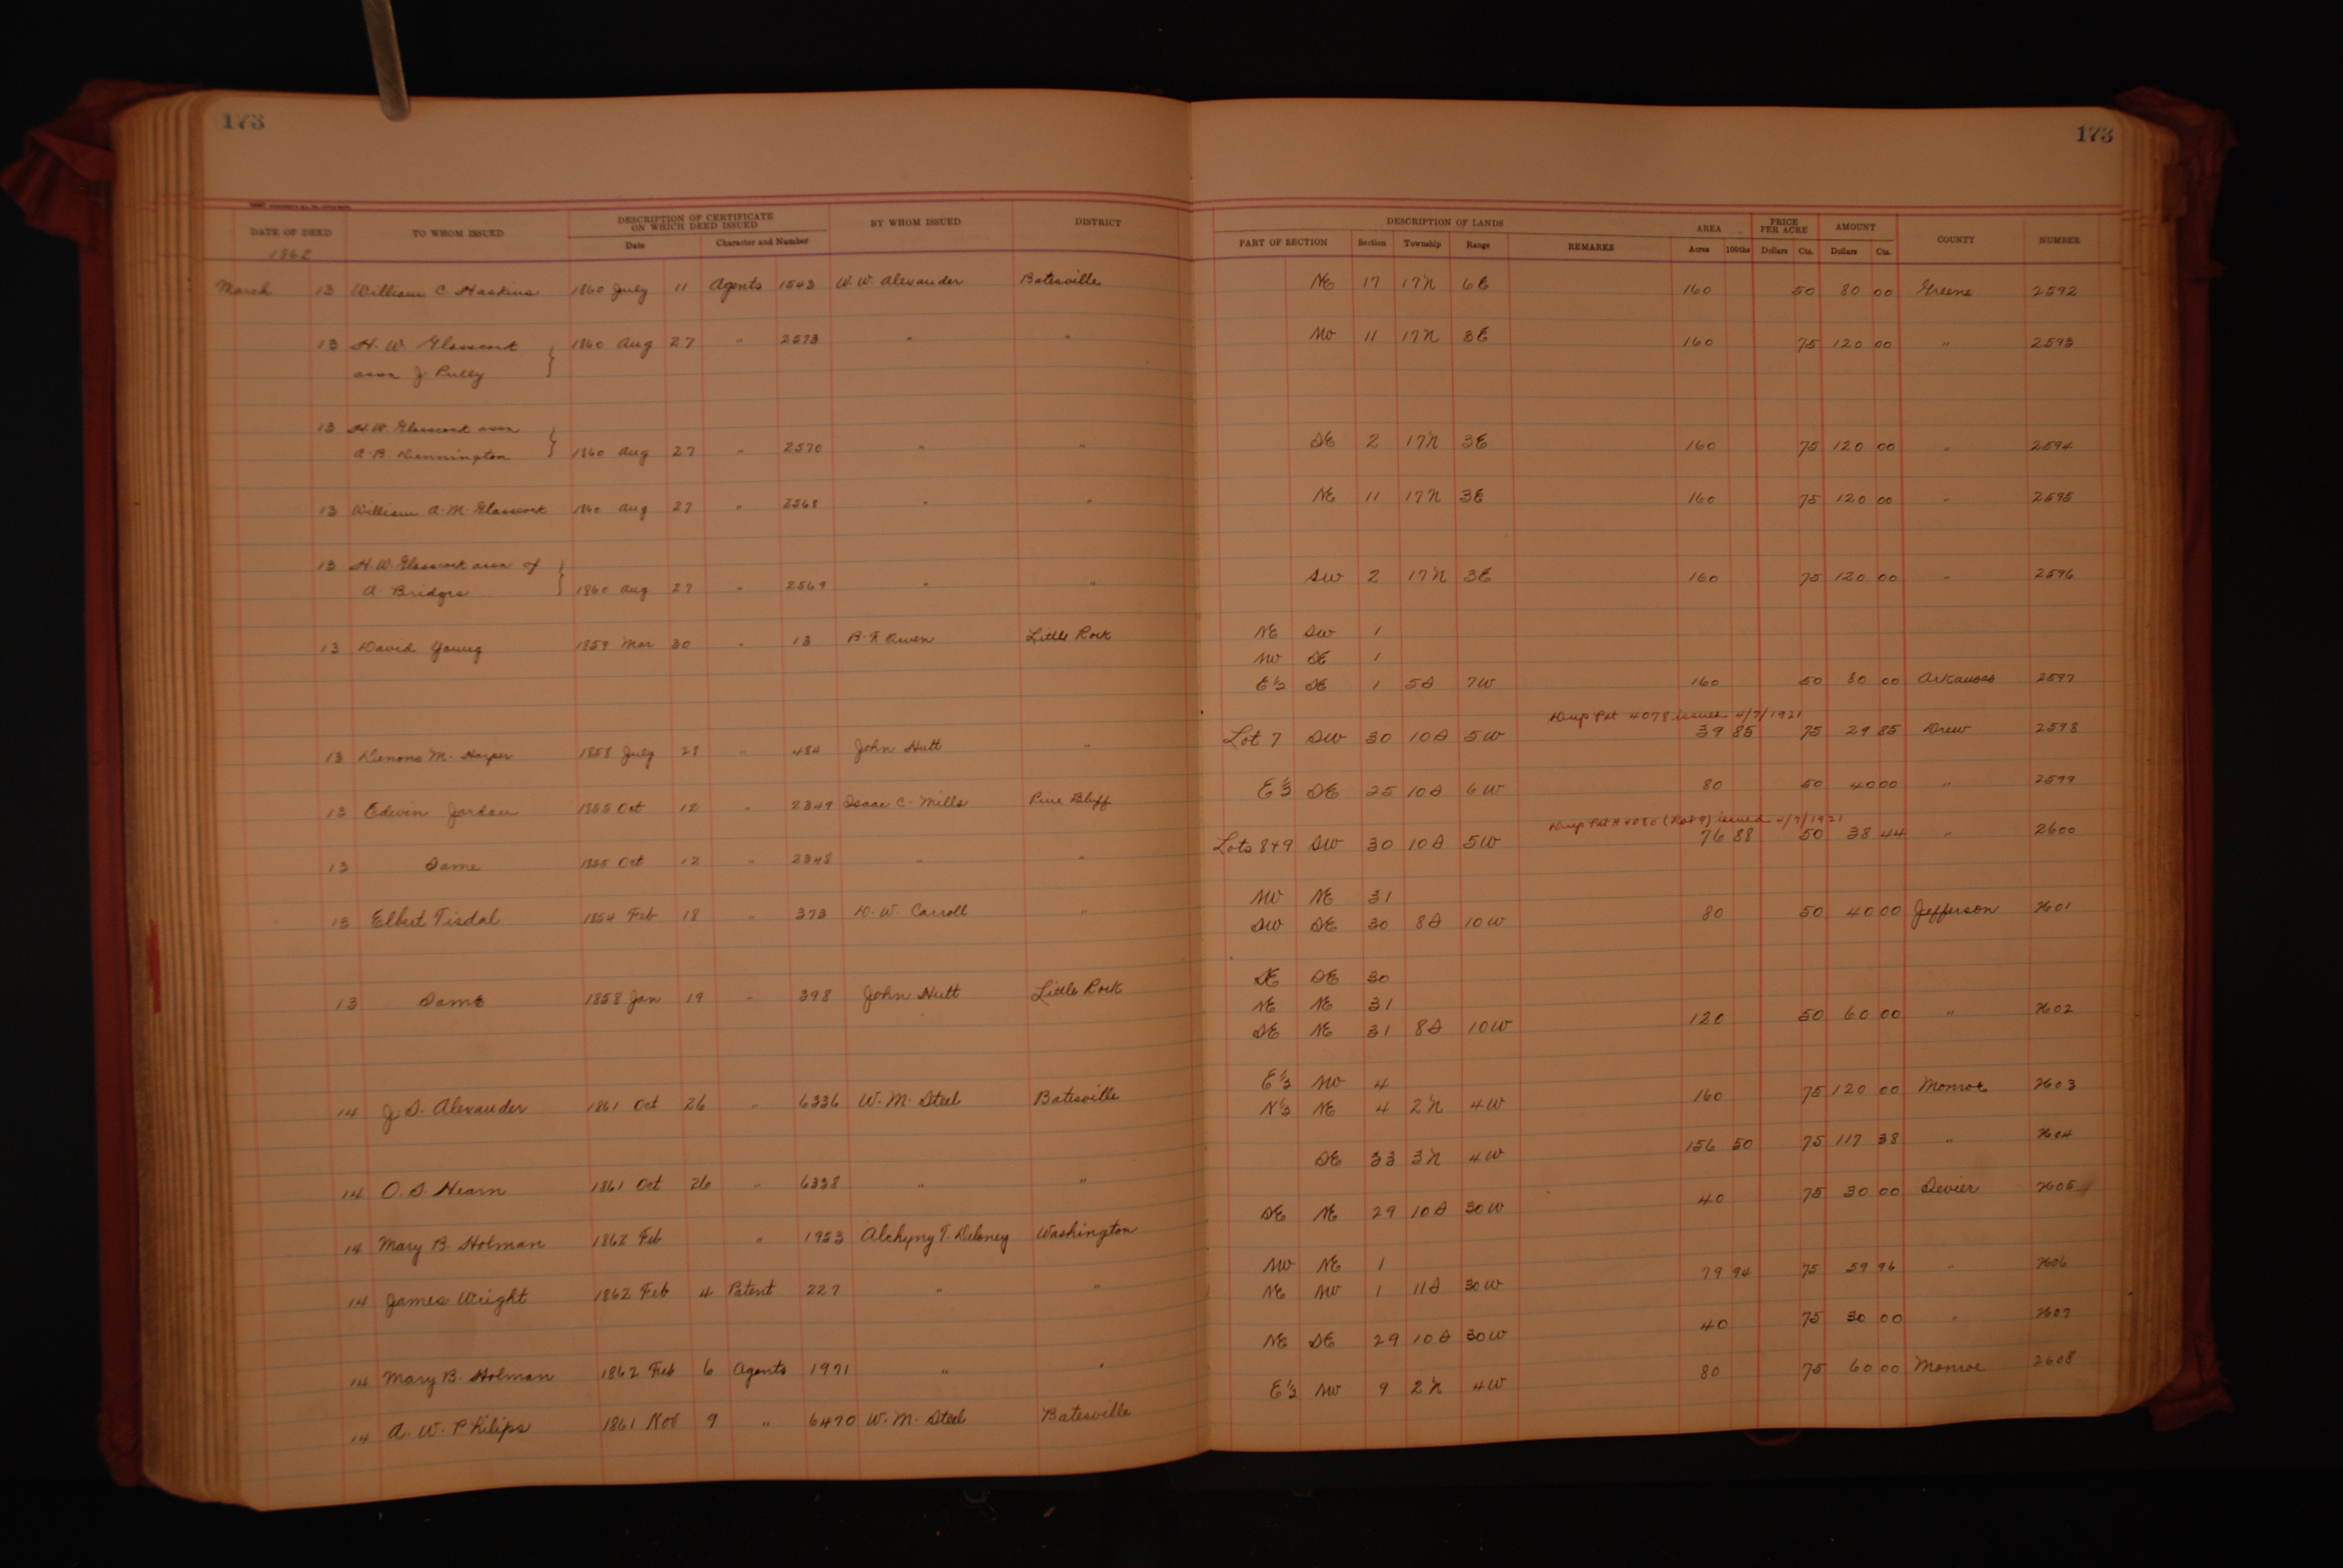 173
173
DATE OF DEED TO WHOM ISSUED DESCRIPTION OF CERTIFICATE ON WHICH DEED ISSUED BY WHOM ISSUED DISTRICT DESCRIPTION OF LANDS AREA PRICE PER ACRE AMOUNT COUNTY NUMBER
Date Character and Number PART OF SECTION Section Township Range REMARKS Acres 100ths Dollars Cts. Dollars Cts.
1862
March 13 William C. Haskins 1860 July 11 Agents 1543 W. W. Alexander Batesville NE 17 17N 6E 160 50 80 00 Greene 2592
13 H. W. Glasscock 1860 Aug 27 " 2573 " " NW 11 17N 3E 160 75 120 00 " 2593
assn J Pully
13 H. W. Glasscock assn
A. B. Dennington 1860 Aug 27 " 2570 " " SE 2 17N 3E 160 75 120 00 " 2594
13 William A. M. Glasscock 1860 Aug 27 " 2568 " " NE 11 17N 3E 160 75 120 00 " 2595
13 H. W. Glasscock assn of
A. Bridges 1860 Aug 27 " 2569 " " SW 2 17N 3E 160 75 120 00 " 2596
13 David Young 1859 Mar 30 " 13 B. F. Owen Little Rock NE SW 1
NW SE 1
E½ SE 1 5S 7W 160 50 80 00 Arkansas 2597
Dup Pat 4078 issued 4/7/1921
13 M. Harper 1858 July 28 " 484 John Hutt " Lot 7 SW 30 10S 5W 39 85 75 29 85 Drew 2598
13 Edwin Jordan 1855 Oct 12 " 2349 Isaac C. Mills Pine Bluff E½ SE 25 10S 6W 80 50 40 00 " 2599
Dup Pat # 4080 (Lot 9) issued 4/7/1921
13 Same 1855 Oct 12 " 2348 " " Lots 8+9 SW 30 10S 5W 76 88 50 38 44 " 2600
13 Elbert Tisdal 1854 Feb 18 " 373 D. W. Carroll " NW NE 31
SW SE 30 8S 10W 80 50 40 00 Jefferson 2601
13 Same 1858 Jan 19 " 398 John Hutt Little Rock SE SE 30
NE NE 31
SE NE 31 8S 10W 120 50 60 00 " 2602
14 J. S. Alexander 1861 Oct 26 " 6336 W. M. Steel Batesville E½ NW 4
N½ NE 4 2N 4W 160 75 120 00 Monroe 2603
14 O. S. Hearn 1861 Oct 26 " 6338 " " SE 33 3N 4W 156 50 75 117 38 " 2604
14 Mary B. Holman 1862 Feb " 1953 Alchyny T. Delaney Washington SE NE 29 10S 30W 40 75 30 00 Sevier 2605
14 James Wright 1862 Feb 4 Patent 227 " " NW NE 1
NE NW 1 11S 30W 79 94 75 59 96 " 2606
14 Mary B. Holman 1862 Feb 6 Agents 1971 " " NE SE 29 10S 30W 40 75 30 00 " 2607
14 A. W. Philips 1861 Nov 9 " 6470 W. M. Steel Batesville E½ NW 9 2N 4W 80 75 60 00 Monroe 2608